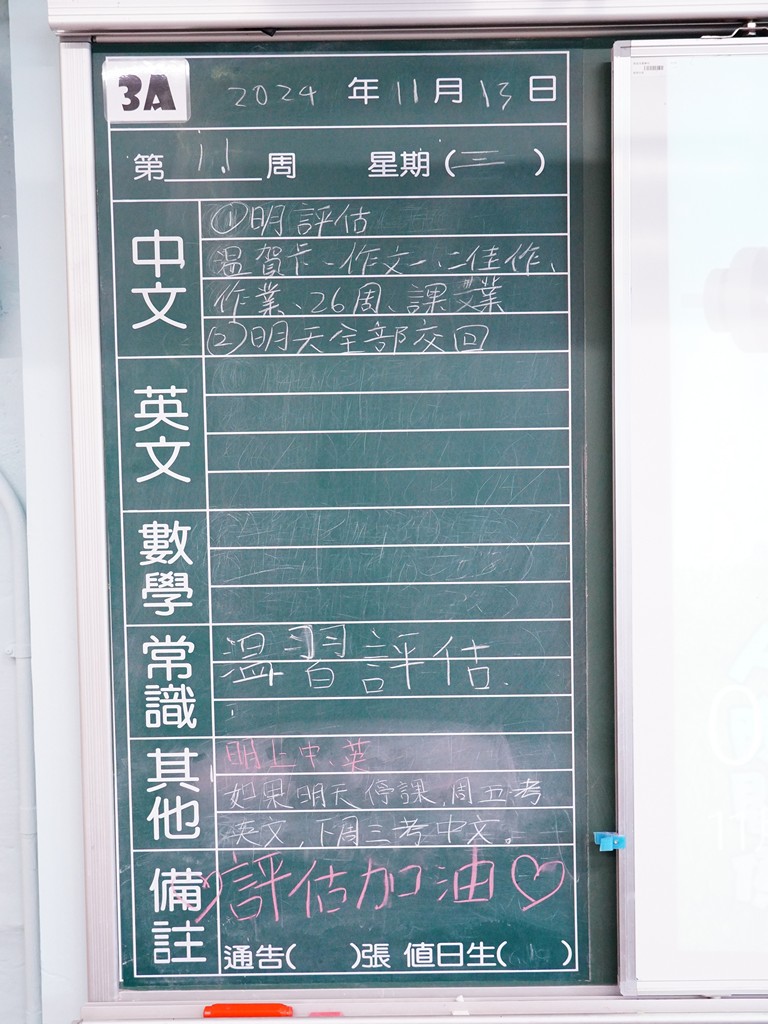 3A 2024 年 11 月 13 日
第 11 周 星期 (三)
中文
①明評估
溫賀卡、作文一、二佳作、
作業、26周、課業
②明天全部交回
英文
數學
常識
溫習評估.
其他
明上中、英
如果明天停課,周五考
英文,下周三考中文。
備註
評估加油♡
通告( )張 值日生( )